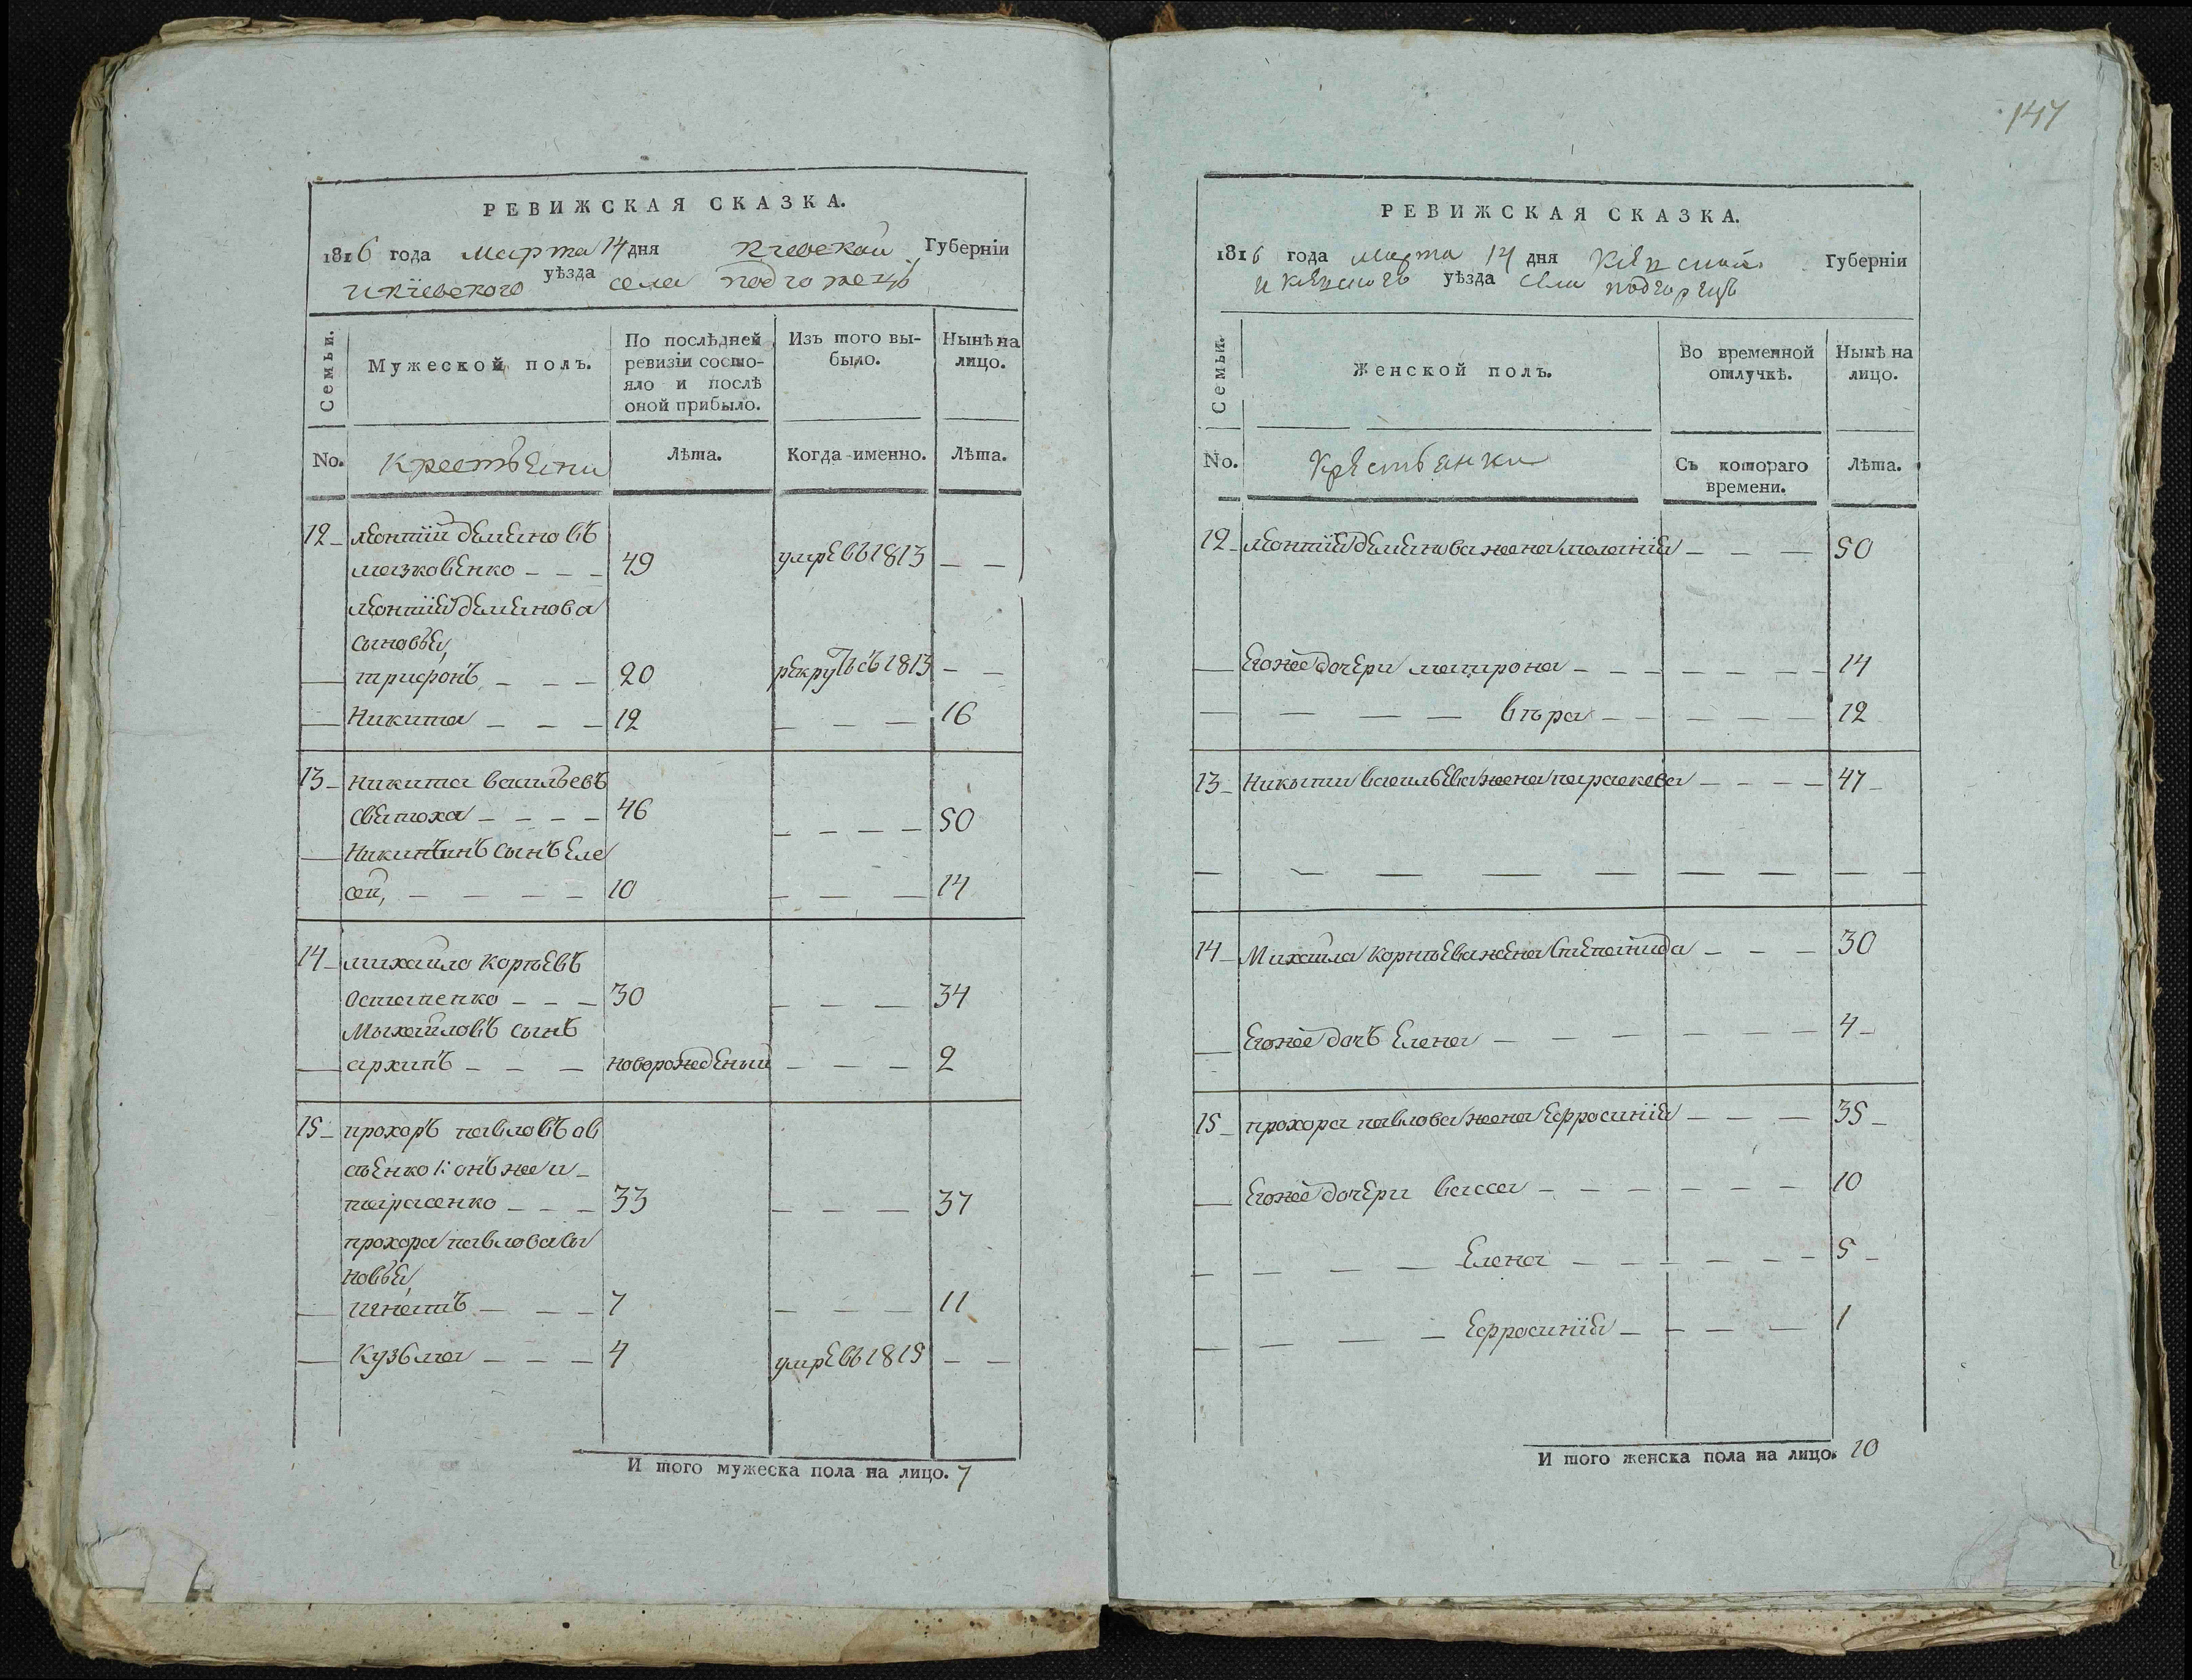 147
РЕВИЖСКАЯ СКАЗКА.
1816 года марта 14 дня Киевской Губерніи
и Кіевского уѣзда села подгорецъ
Семьи.
Мужеской полъ.
По послѣдней ревизіи состояло и послѣ оной прибыло.
Изъ того выбыло.
Нынѣ на лицо.
No. Крестьяни Лѣта. Когда именно. Лѣта.
12 леонтій деменовъ
мазковенко 49 умре въ 1813
леонтія деменова
сыновья
трифонъ 20 рекрутъ съ 1813
Никита 12 16
13 Никита васильевъ
святоха 46 50
Никитинъ сынъ Еле
сей, 10 14
14 михайло корнѣевъ
Остапенко 30 34
Михайловъ сынъ
архипъ новорожденый 2
15 прохоръ павловъ ов
сѣенко: онъ же и
тарасенко 33 37
прохора павлова сы
новья
игнатъ 7 11
Кузьма 4 умре въ 1815
И того мужеска пола на лицо. 7
РЕВИЖСКАЯ СКАЗКА.
1816 года марта 14 дня Кіевской Губерніи
и Кіевского уѣзда села подгорецъ
Семьи.
Женской полъ.
Во временной отлучкѣ.
Нынѣ на лицо.
No. Крестьянки Съ котораго времени. Лѣта.
12 леонтія деменова жена меланія 50
Егоже дочери матрона 14
вѣра 12
13 Никиты васильева жена параскева 47
14 Михайла корнѣева жена степанида 30
Егоже дочь Елена 4
15 прохора павлова жена Ефросинія 35
Егоже дочери васса 10
Елена 5
Ефросинія 1
И того женска пола на лицо. 10